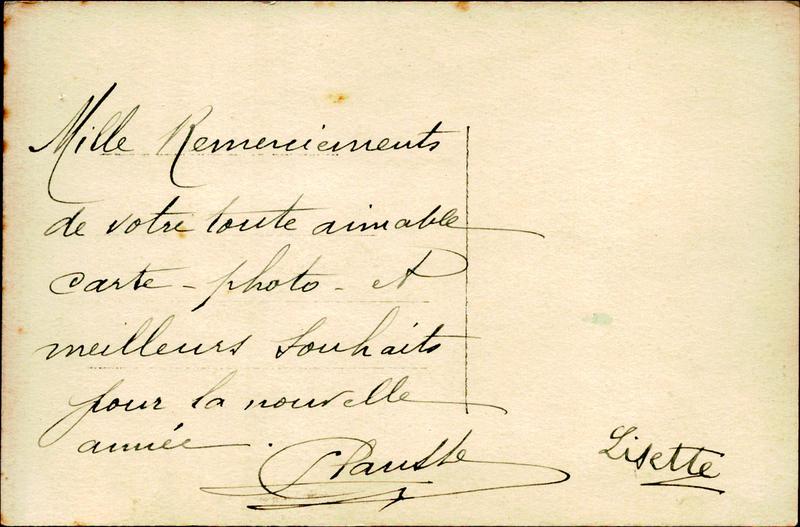 Mille Remerciements
de votre toute aimable
carte - photo - et
meilleurs souhaits
pour la nouvelle
année.
Lisette